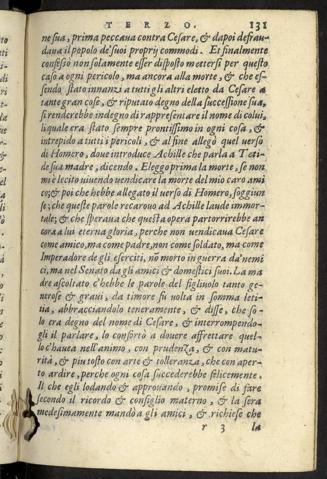 TERZO. 131
ne sua, prima peccaua contra Cesare, & dapoi defrau-
daua il popolo de'suoi proprij commodi. Et finalmente
confessò non solamente esser disposto mettersi per questo
caso a ogni pericolo, ma ancora alla morte, & che es-
sendo stato innanzi a tutti gli altri eletto da Cesare a
tante gran cose, & riputato degno della successione sua,
si renderebbe indegno di rappresentare il nome di colui,
il quale era stato sempre prontissimo in ogni cosa, &
intrepido a tutti i pericoli, & al fine allegò quel verso
di Homero, doue introduce Achille che parla a Teti-
de sua madre, dicendo. Eleggo prima la morte, se non
mi è lecito uiuendo uendicare la morte del mio caro ami
co; & poi che hebbe allegato il verso di Homero, soggiun
se; che queste parole recarouo ad Achille laude immor-
tale; & che speraua che questa opera partorirebbe an
cora a lui eterna gloria, perche non uendicaua Cesare
come amico, ma come padre, non come soldato, ma come
Imperadore de gli eserciti, nō morto in guerra da'nemi
ci, ma nel Senato da gli amici & domestici suoi. La ma
dre ascoltato c'hebbe le parole del figliuolo tanto ge-
nerose & graui, da timore fu uolta in somma leti-
tia, abbracciandolo teneramente, & disse, che so-
lo era degno del nome di Cesare, & interrompendo-
gli il parlare, lo confortò a douere affrettare quel-
lo c'hauea nell'animo, con prudenza, & con matu-
rità, & piu tosto con arte & tolleranza, che con aper-
to ardire, perche ogni cosa succederebbe felicemente.
Il che egli lodando & approuando, promise di fare
secondo il ricordo & consiglio materno, & la sera
medesimamente mandò a gli amici, & richiese che
r 3 la